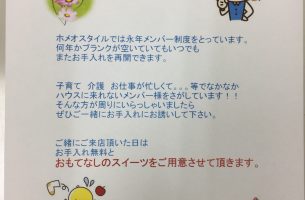 ホメオスタイルでは永年メンバー制度をとっています。
何年かブランクが空いていてもいつでも
またお手入れを再開できます。
子育て　介護　お仕事が忙しくて。。。等でなかなか
ハウスに来れないメンバー様をさがしています！！
そんな方が周りにいらっしゃいましたら
ぜひご一緒にお手入れにお誘いして下さい。
ご緒にご来店頂いた日は
お手入れ無料と
おもてなしのスイーツをご用意させて頂きます。